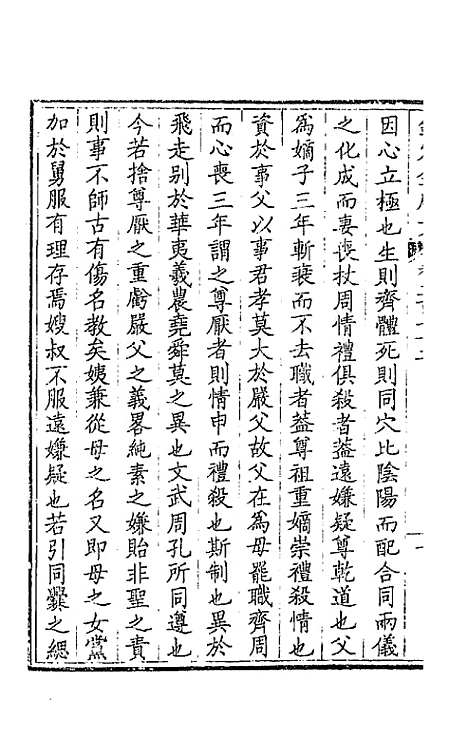 因心立極也生則齊體死則同穴比陰陽而配合同兩儀
之化成而妻喪杖周情禮俱殺者葢遠嫌疑尊乾道也父
爲嫡子三年斬衰而不去職者葢尊祖重嫡崇禮殺情也
資於事父以事君孝莫大於嚴父故父在爲母罷職齊周
而心喪三年謂之尊厭者則情申而禮殺也斯制也異於
飛走别於華夷羲農堯舜莫之異也文武周孔所同遵也
今若捨尊厭之重虧嚴父之義畧純素之嫌貽非聖之責
則事不師古有傷名教矣姨兼從母之名又即母之女黨
加於舅服有理存焉嫂叔不服遠嫌疑也若引同爨之緦